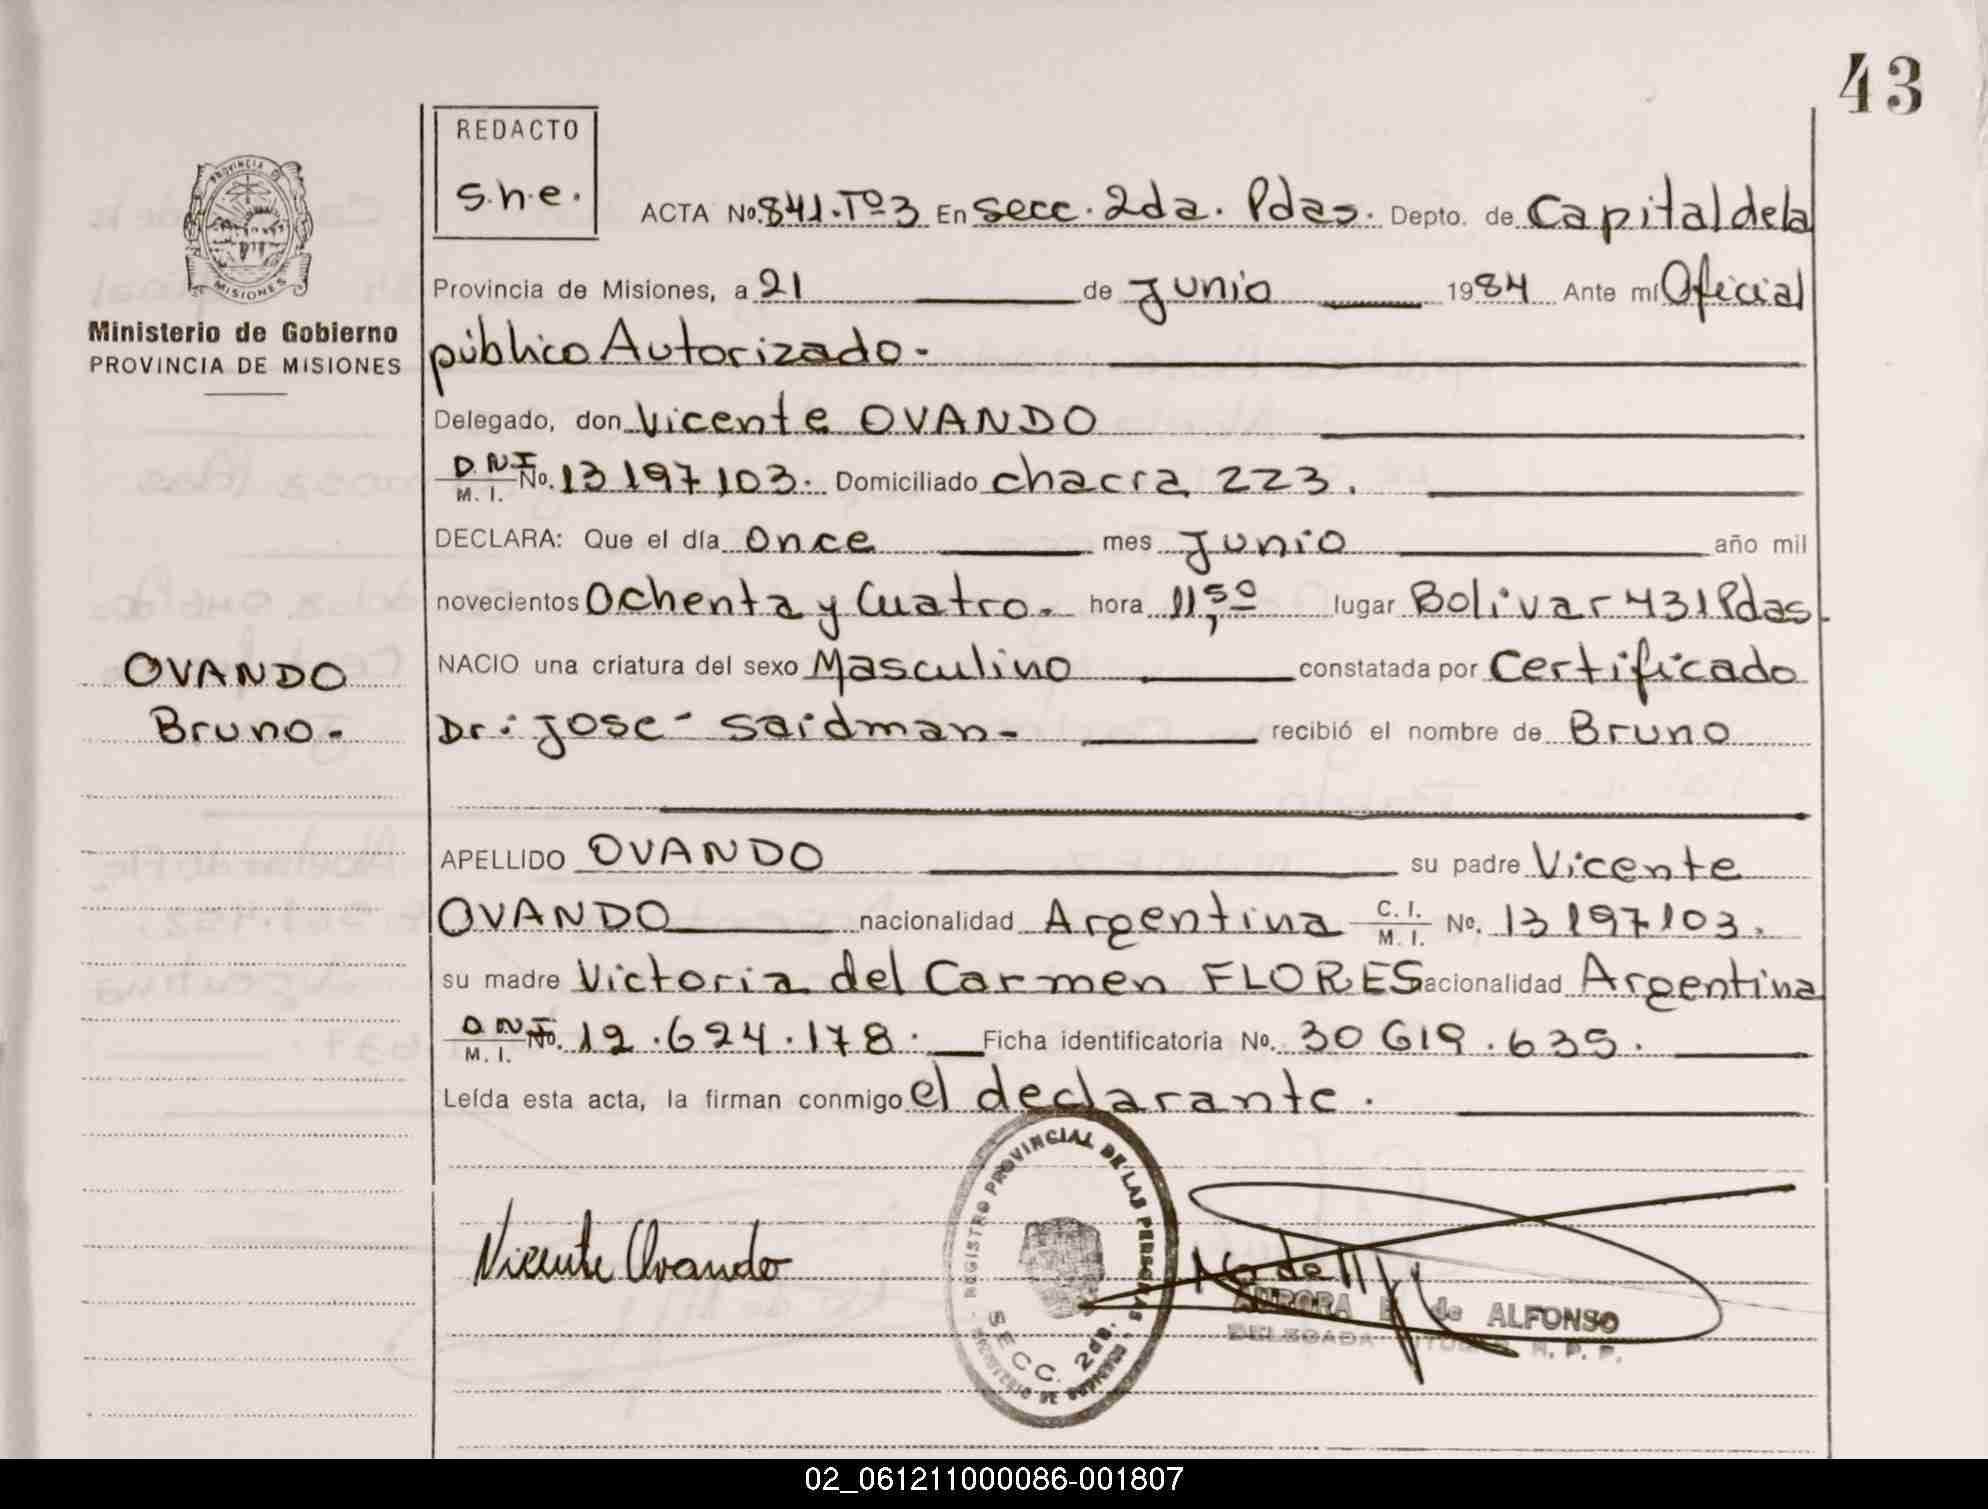 43
REDACTO
s.h.e.
PROVINCIA DE
MISIONES
Ministerio de Gobierno
PROVINCIA DE MISIONES
ACTA No. 841. Tº 3 En secc. 2da. Pdas. Depto. de Capital de la
Provincia de Misiones, a 21 de Junio 1984 Ante mí Oficial
público Autorizado.
Delegado, don Vicente OVANDO
D.N.I. M. I. No. 13 197 103. Domiciliado chacra 223.
DECLARA: Que el día Once mes Junio año mil
novecientos Ochenta y Cuatro. hora 11,50 lugar Bolivar 431 Pdas.
NACIO una criatura del sexo Masculino constatada por Certificado
Dr: Jose Saidman. recibió el nombre de Bruno
OVANDO
Bruno.
APELLIDO OVANDO su padre Vicente
OVANDO nacionalidad Argentina C. I. M. I. No. 13 197 103.
su madre Victoria del Carmen FLORES acionalidad Argentina
D.N.I. M. I. No. 12.624.178. Ficha identificatoria No. 30 619.635.
Leída esta acta, la firman conmigo el declarante.
REGISTRO PROVINCIAL DE LAS PERSONAS
SECC. 2da.
MINISTERIO DE GOBIERNO
Vicente Ovando
AURORA de ALFONSO
DELEGADA R. P. P.
02_061211000086-001807